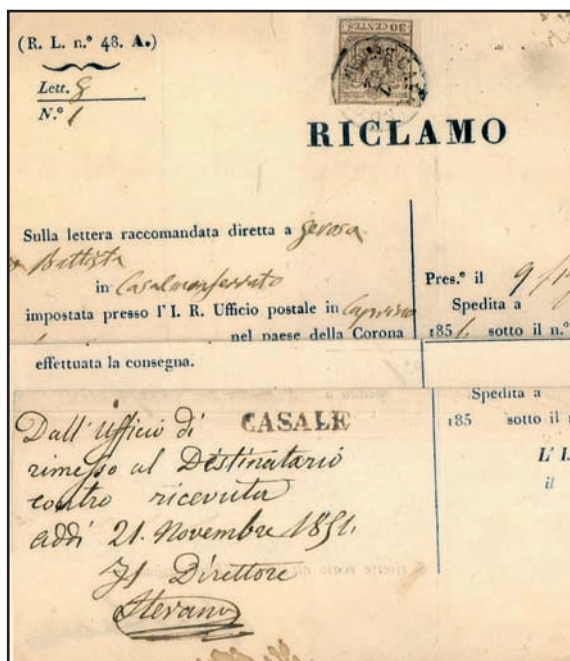 30 CENTES.
(R. L. n.º 48. A.)
Lett. g
N.º 1
RICLAMO
Sulla lettera raccomandata diretta a Gerosa
Battista
in Casalmonferrato
impostata presso l' I. R. Ufficio postale in
nel paese della Corona
effettuata la consegna.
Pres.º il 9
Spedita a
185 sotto il n.º
Spedita a
185 sotto il
L' I.
il
Dall' Ufficio di CASALE
rimesso al Destinatario
contro ricevuta
addi 21. Novembre 1851.
Il Direttore
Sterano